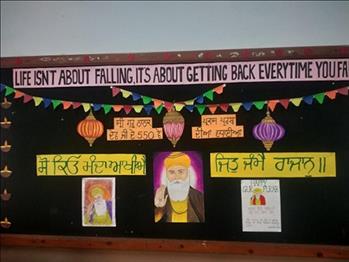 LIFE ISN'T ABOUT FALLING, IT'S ABOUT GETTING BACK EVERYTIME YOU FA
ਸ੍ਰੀ ਗੁਰੂ ਨਾਨਕ
ਦੇਵ ਜੀ ਦੇ 550
ਪੁਰਬ
ਦੀਆਂ ਵਧਾਈਆਂ
ਸੋ ਕਿਉ ਮੰਦਾ ਆਖੀਐ ਜਿਤੁ ਜੰਮੈ ਰਾਜਾਨੁ ॥
HAPPY